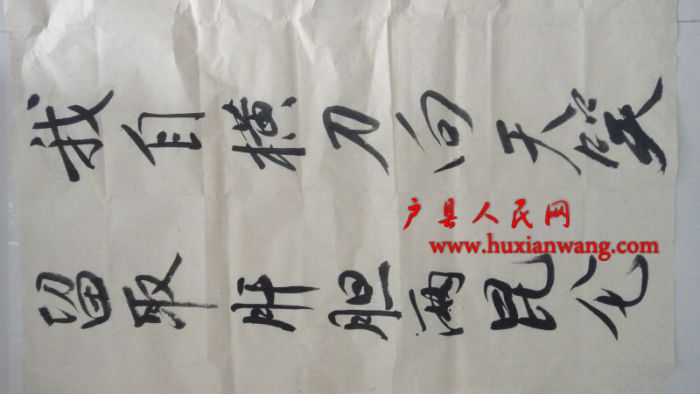 我自横刀向天笑
留取肝胆两昆仑
户县人民网
www.huxianwang.com